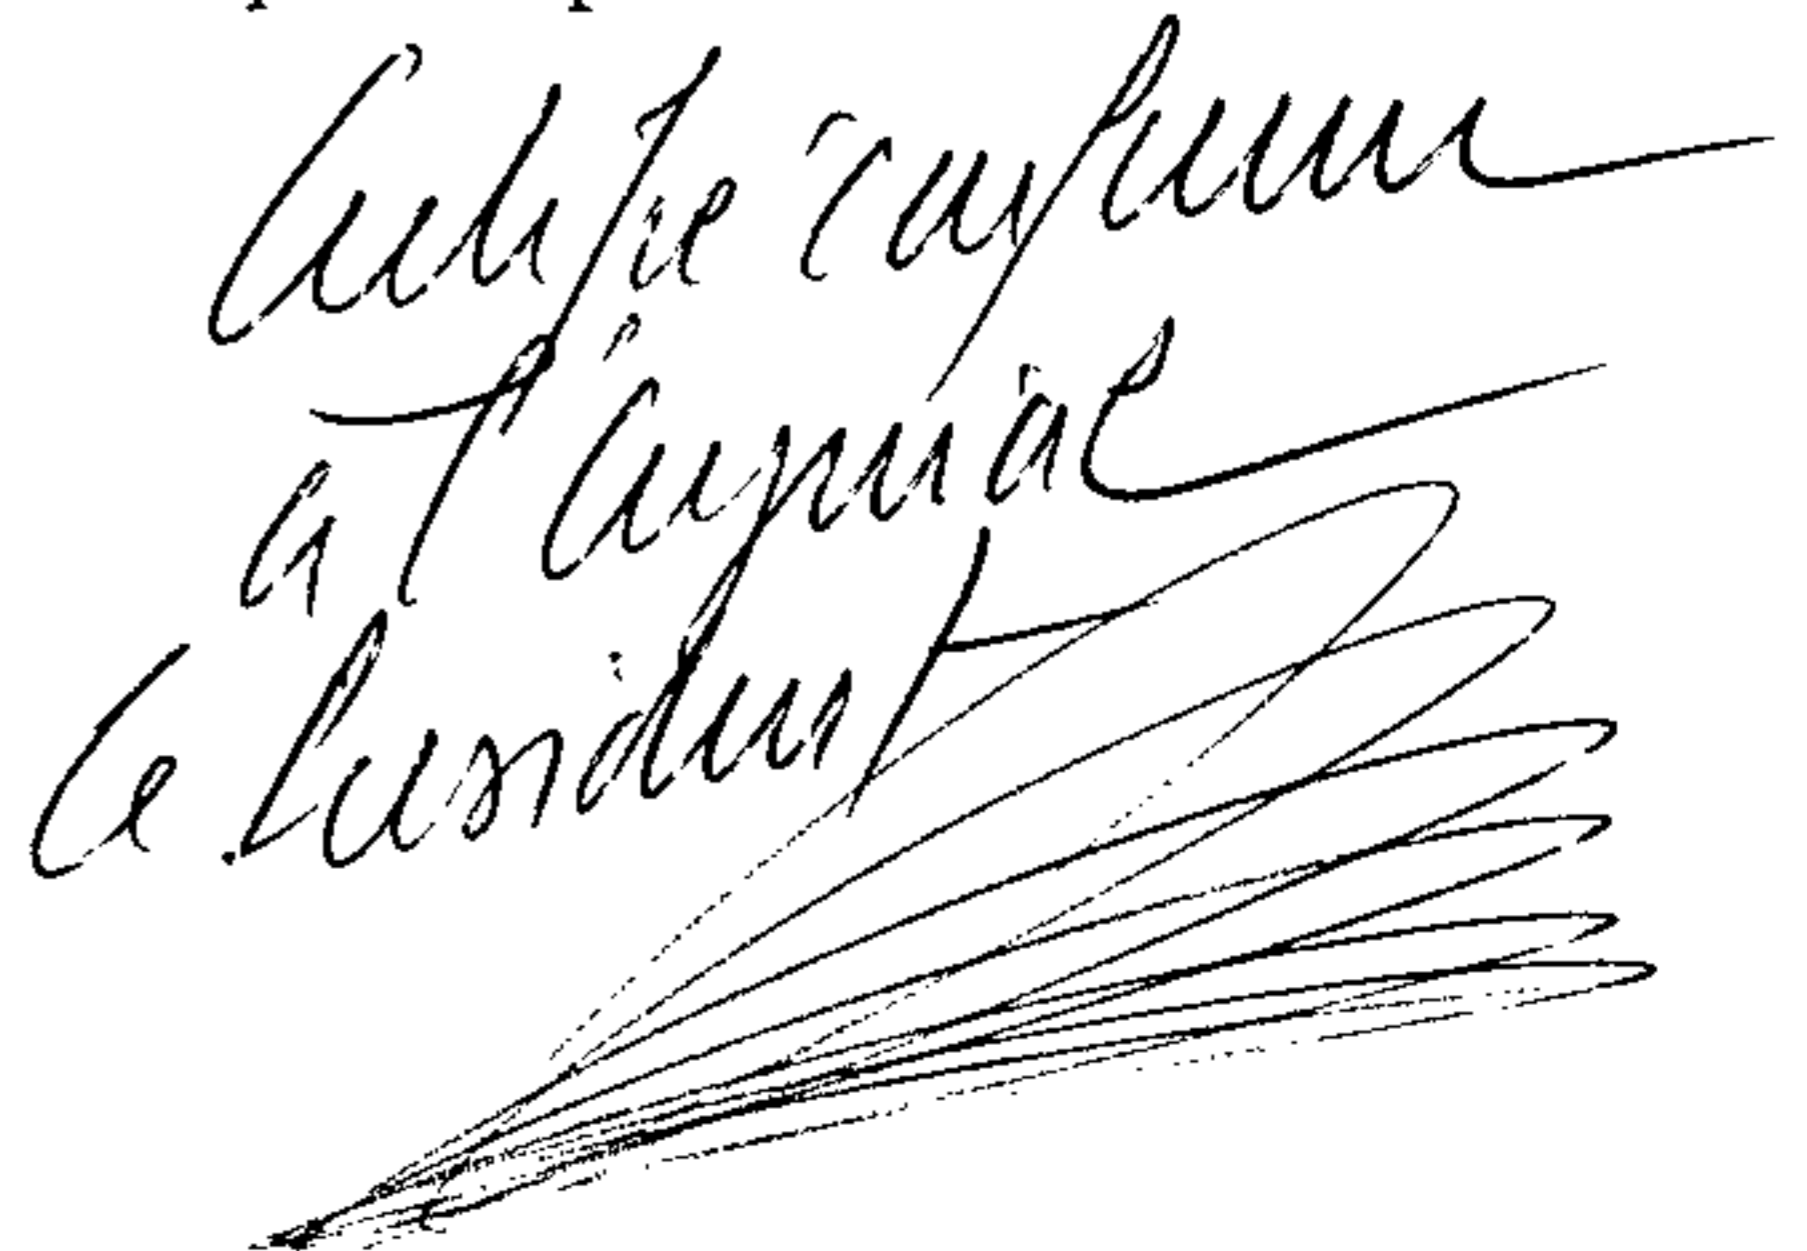 Certifié conforme
à l'original
Le Président